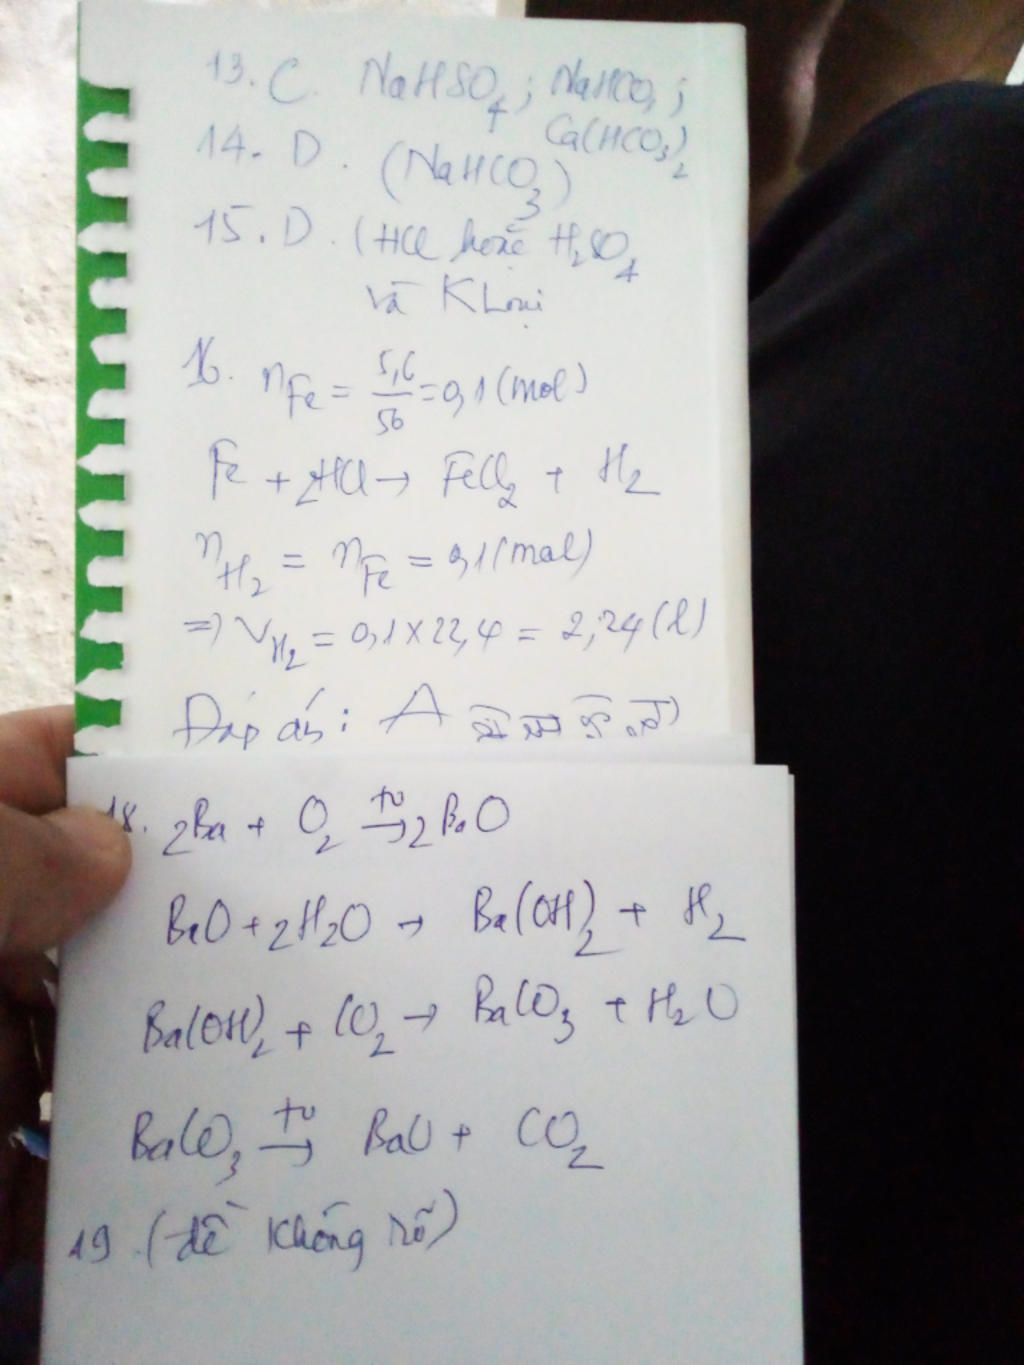 13. C. NaHSO4; NaHCO3;
Ca(HCO3)2
14. D. (NaHCO3)
15. D. (HCl hoặc H2SO4
và K Loại
16. nFe = 5,6/56 = 0,1 (mol)
Fe + 2HCl → FeCl2 + H2
nH2 = nFe = 0,1 (mol)
=> VH2 = 0,1 x 22,4 = 2,24 (l)
Đáp án: A
18. 2Ba + O2 t° → 2BaO
BaO + 2H2O → Ba(OH)2 + H2
Ba(OH)2 + CO2 → BaCO3 + H2O
BaCO3 t° → BaO + CO2
19. (đề không rõ)